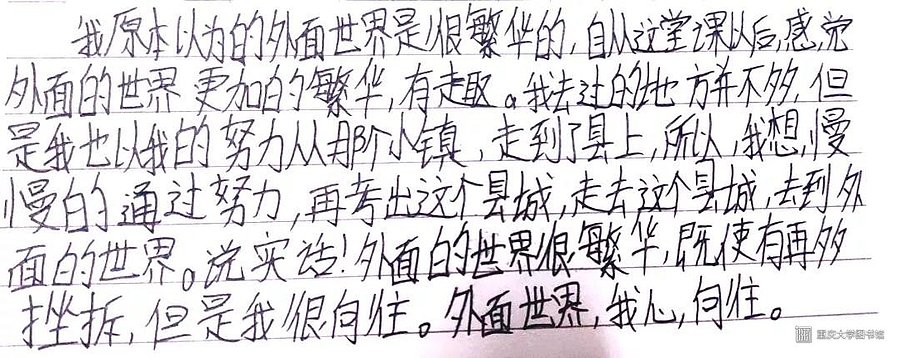 我原本以为的外面世界是很繁华的,自从这堂课以后,感觉
外面的世界更加的繁华,有走取。我去过的地方并不多,但
是我也以我的努力从那个小镇,走到了县上,所以,我想,慢
慢的通过努力,再考出这个县城,走去这个县城,去到外
面的世界。说实话!外面的世界很繁华,既使有再多
挫折,但是我很向往。外面世界,我心,向往。
重庆大学图书馆